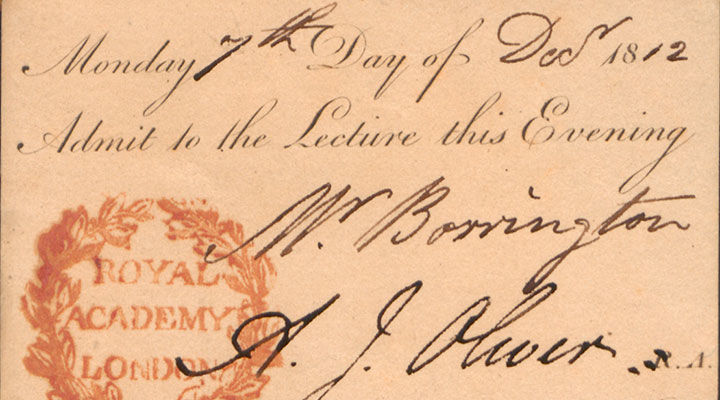 Monday 7th Day of Decr 1812
Admit to the Lecture this Evening
Mr. Borrington
ROYAL
ACADEMY
LONDON
A. J. Oliver
R.A.